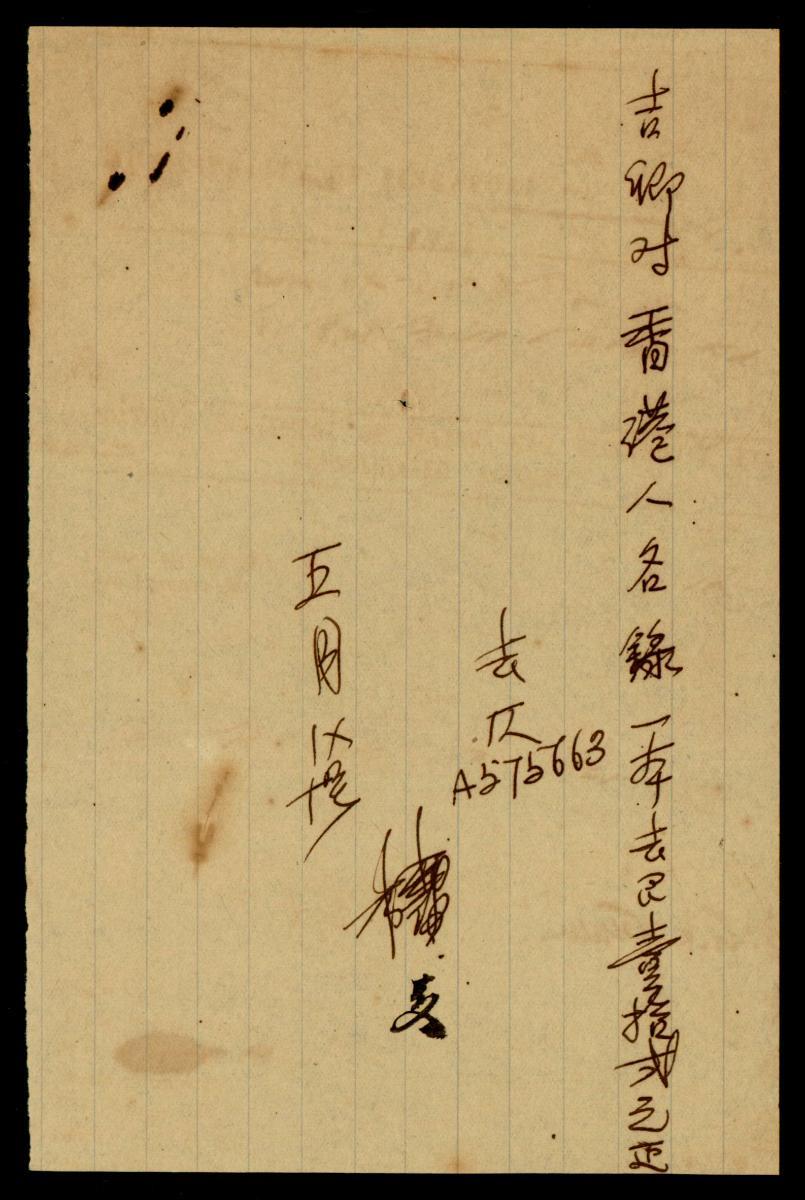 吉卿対香港人名錄一本去艮壹拾弍元正
去仄
A575663
五月
支